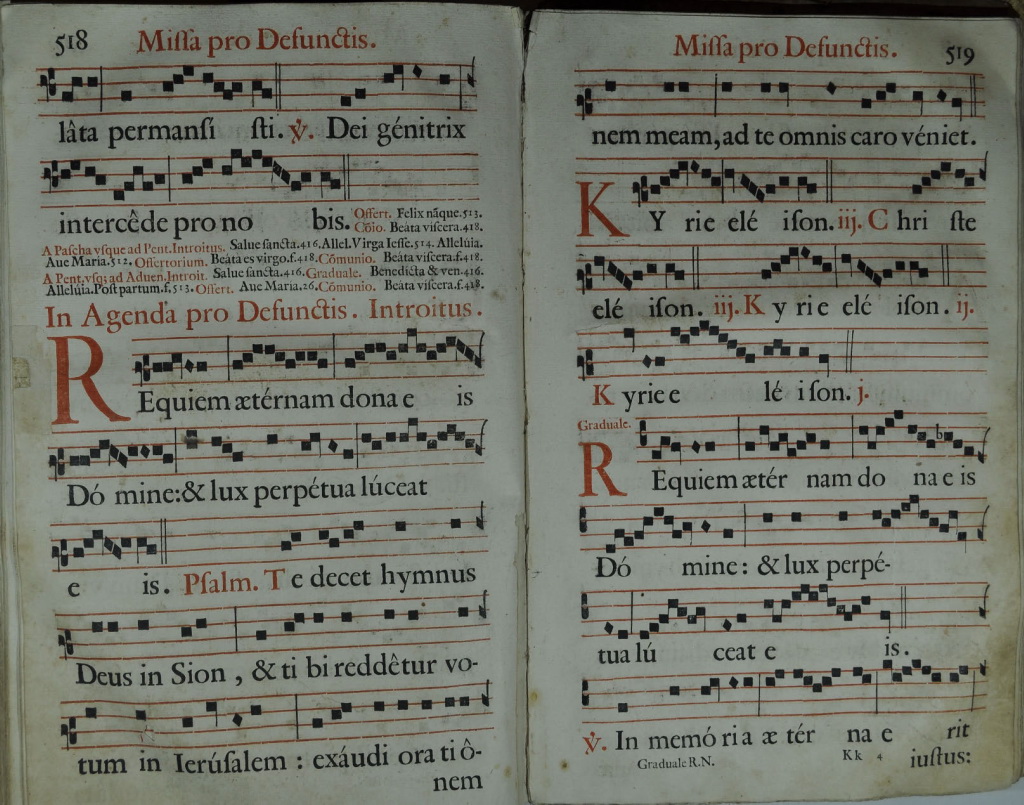 518 Miſſa pro Defunctis.
lâta permanſi ſti. ℣. Dei génitrix
intercêde pro no bis. Offert. Felix nãque.513.
Cõio. Beáta viſcera.418.
A Paſcha vſque ad Pent. Introitus. Salue ſancta.416. Allel. Virga Ieſſe.514. Allelúia.
Aue Maria.512. Offertorium. Beáta es virgo.f.418. Cõmunio. Beáta viſcera.f.418.
A Pent. vſq; ad Aduen. Introit. Salue ſancta.416. Graduale. Benedicta & ven.416.
Allelúia. Poſt partum.f.513. Offert. Aue Maria.26. Cõmunio. Beáta viſcera.f.418.
In Agenda pro Defunctis. Introitus.
REquiem ætérnam dona e is
Dó mine: & lux perpétua lúceat
e is. Pſalm. Te decet hymnus
Deus in Sion, & ti bi reddêtur vo-
tum in Ierúſalem : exáudi ora ti ô-
nem
Miſſa pro Defunctis. 519
nem meam, ad te omnis caro véniet.
KY rie elé iſon. iij. C hri ſte
elé iſon. iij. K y ri e elé iſon. ij.
K yrie e lé i ſon. j.
Graduale.
REquiem ætér nam do na e is
Dó mine: & lux perpé-
tua lú ceat e is.
℣. In memó ri a æ tér na e rit
Graduale R.N. Kk 4 iuſtus: